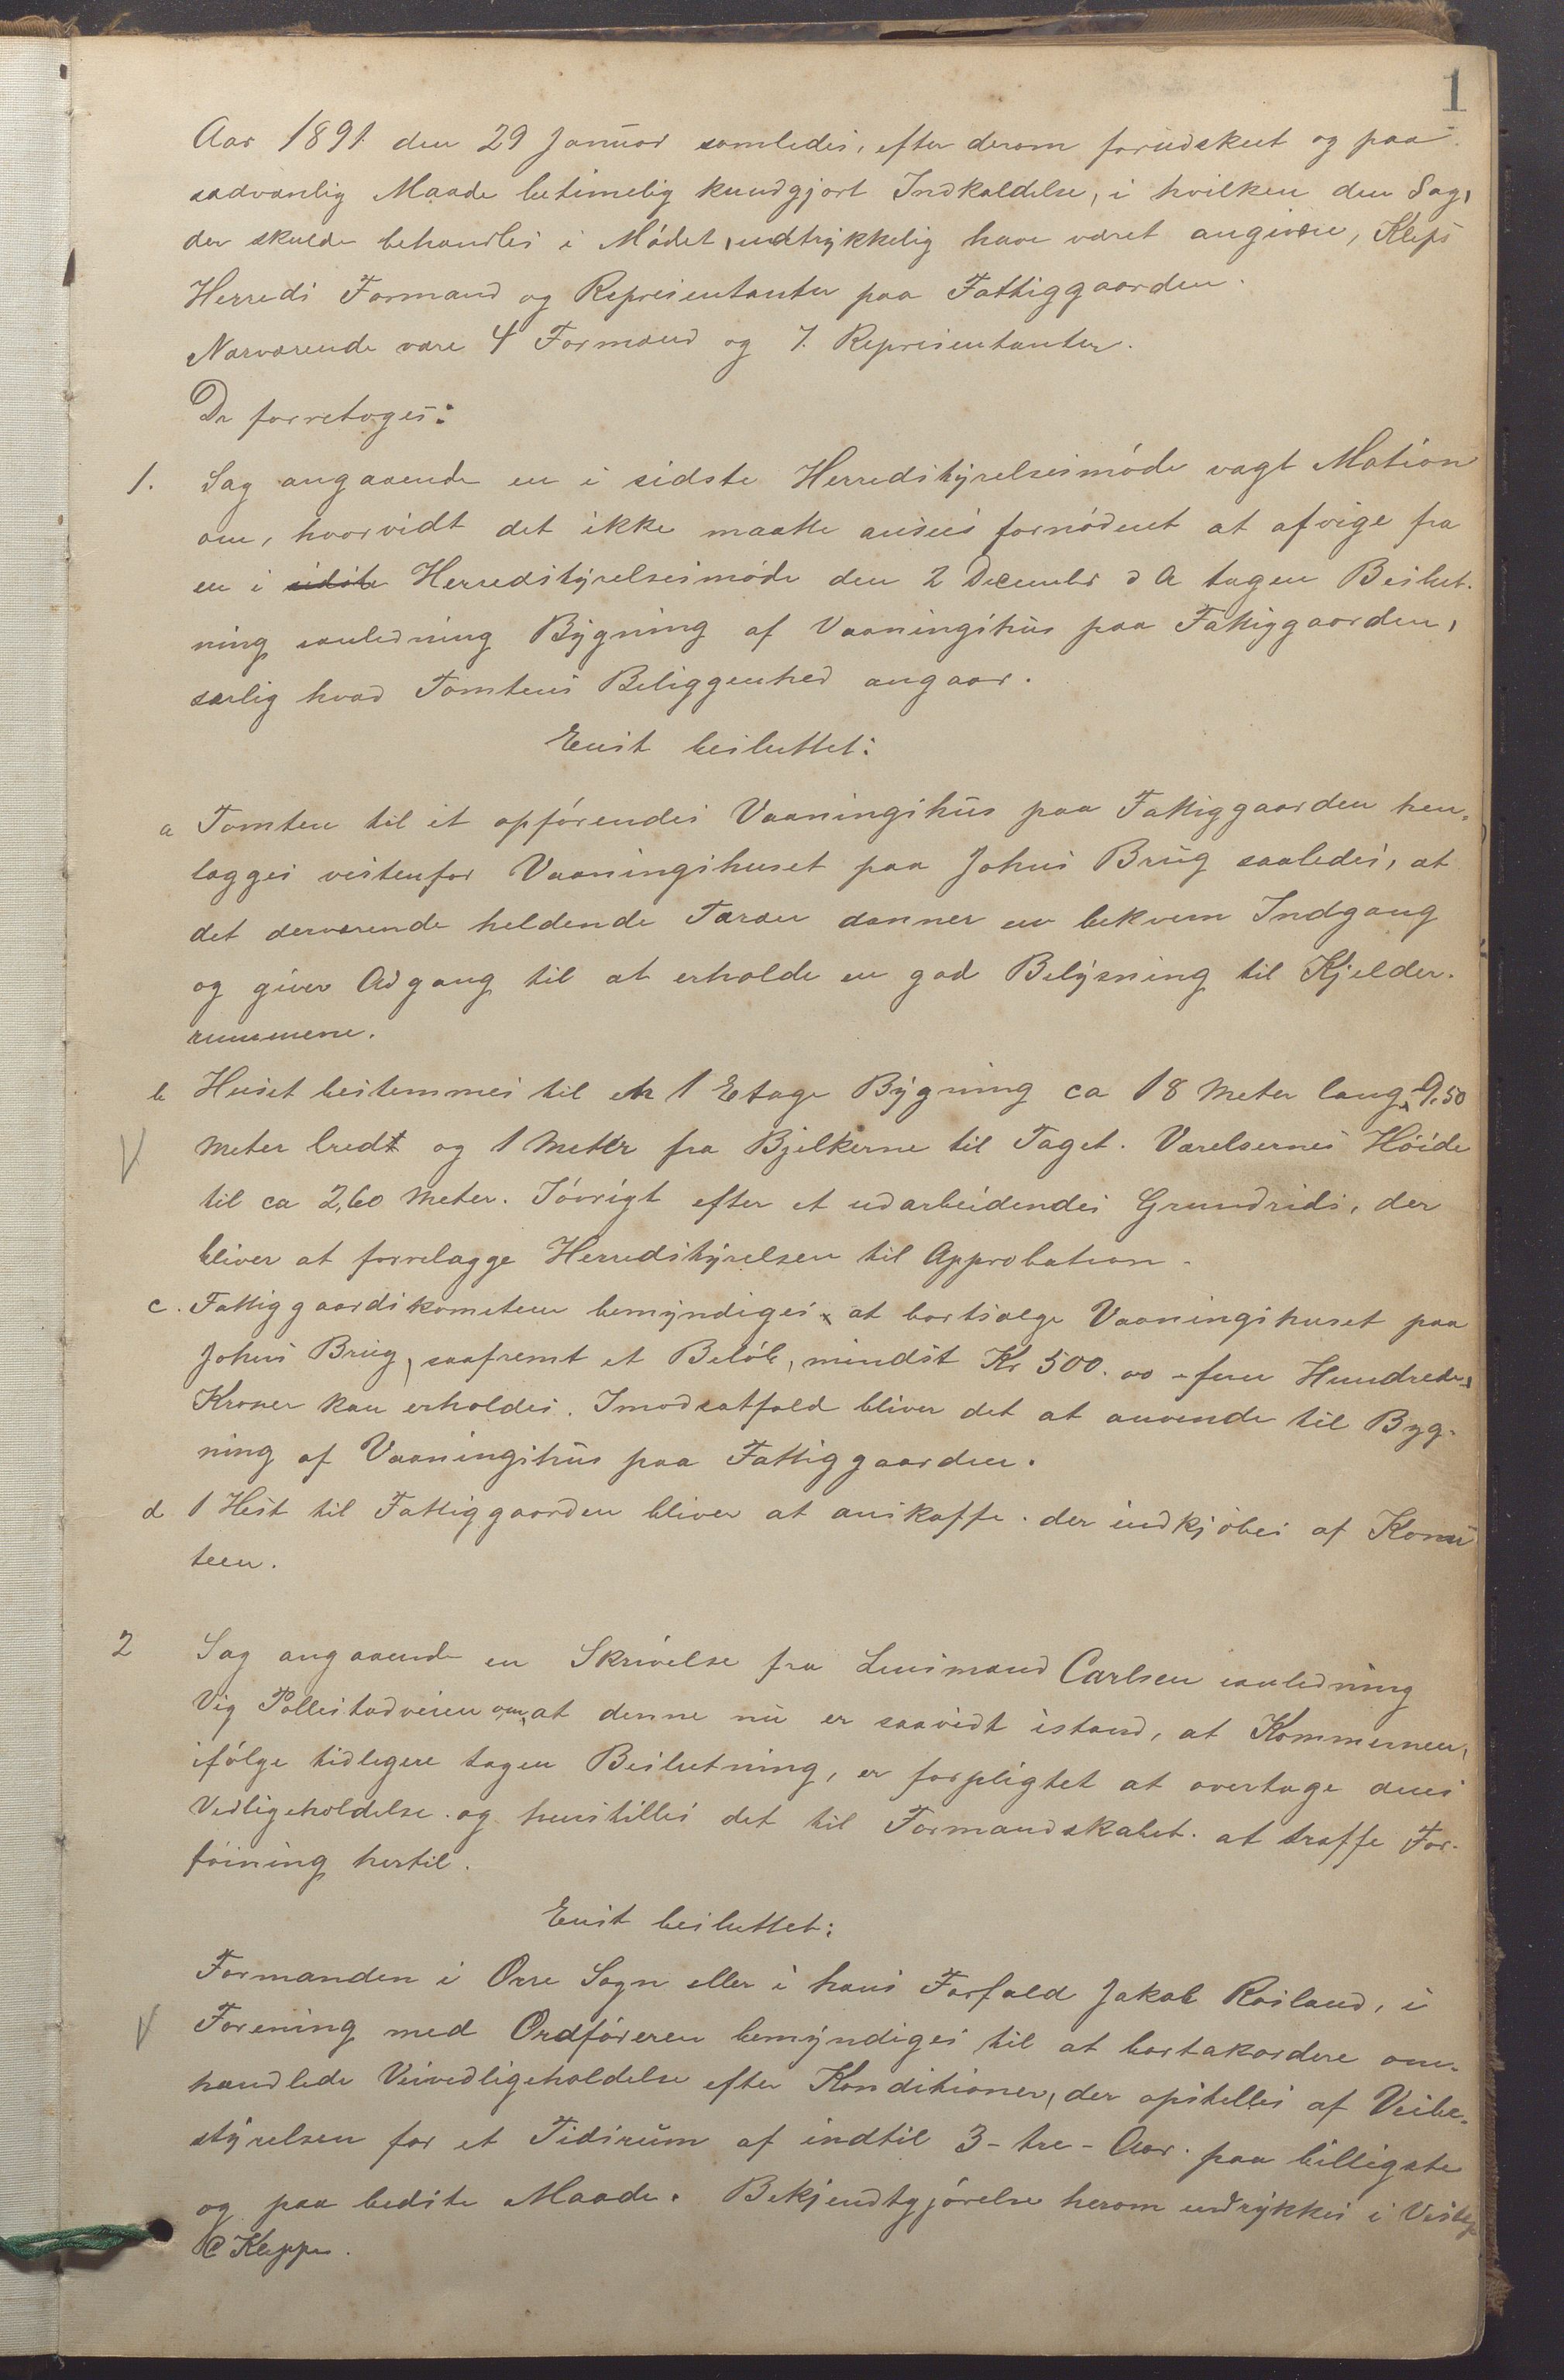 1
Aar 1891 den 29 Januar samledes, efter derom forudskeet og paa
sædvanlig Maade betimelig kundgjort Indkaldelse, i hvilken den Sag,
der skulde behandles i Mødet, udtrykkelig have været angivne, Kleps
Herreds Formænd og Repræsentanter paa Fattiggaarden.
Nærværende vare 4 Formænd og 7. Repræsentanter.
De forretoges:
1. Sag angaaende en i sidste Herredstyrelsesmøde vagt Motion
om, hvorvidt det ikke maatte ansees fornødent at afvige fra
en i sidste Herredstyrelsesmøde den 2 December d A tagen Beslut-
ning anledning Bygning af Vaaningshus paa Fattiggaarden,
særlig hvad Tomtens Beliggenhed angaar.
Enst besluttet:
a Tomten til et opførendes Vaaningshus paa Fattiggaarden hen-
lægges vestenfor Vaaningshuset paa Johns Brug saaledes, at
det derværende heldende Tæræn danner en bekvem Indgang
og giver Adgang til at erholde en god Belysning til Kjelder-
rummene.
b Huset bestemmes til en 1 Etage Bygning ca 18 Meter lang, 9,50
Meter bredt og 1 Meter fra Bjelkerne til Taget. Værelsernes Høide
til ca 2,60 Meter. Iøvrigt efter et udarbeidendes Grundrids, der
bliver at forrelægge Herredstyrelsen til Approbation.
c. Fattiggaardskometeen bemyndiges at bortsælge Vaaningshuset paa
Johns Brug, saafremt et Beløb, mindst Kr 500.00 - fem Hundrede,
Kroner kan erholdes. Imodsatfald bliver det at anvende til Byg-
ning af Vaaningshus paa Fattiggaarden.
d 1 Hest til Fattiggaarden bliver at anskaffe. der indkjøbes af Komi
teen.
2 Sag angaaende en Skrivelse fra Lensmand Carlsen anledning
Vig Pollestadveien om, at denne nu er saavidt istand, at Kommunen,
ifølge tidligere tagen Beslutning, er forpligtet at overtage dens
Vedligeholdelse. og henstilles det til Formandskabet. at træffe For-
føining hertil.
Enst besluttet:
Formanden i Orre Sogn eller i hans Forfald Jakob Rosland, i
Forening med Ordføreren bemyndiges til at bortakordere om-
handlede Veivedligeholdelse efter Konditioner, der opstilles af Veibe-
styrelsen for et Tidsrum af indtil 3 - tre - Aar. paa billigste
og paa bedste Maade. Bekjendtgjørelse herom indrykkes i
@ Kleppe.